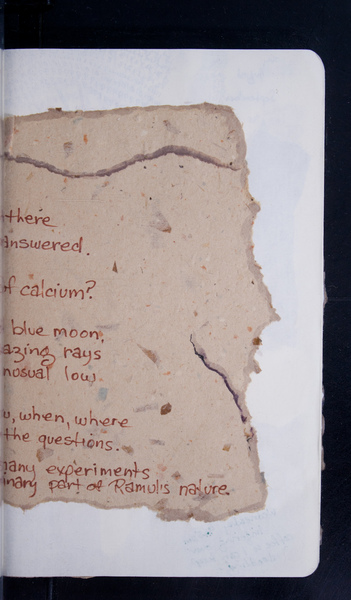 there
answered.
of calcium?
blue moon,
azing rays
nusual low
w, when, where
the questions.
many experiments
inary part of Ramul's nature.